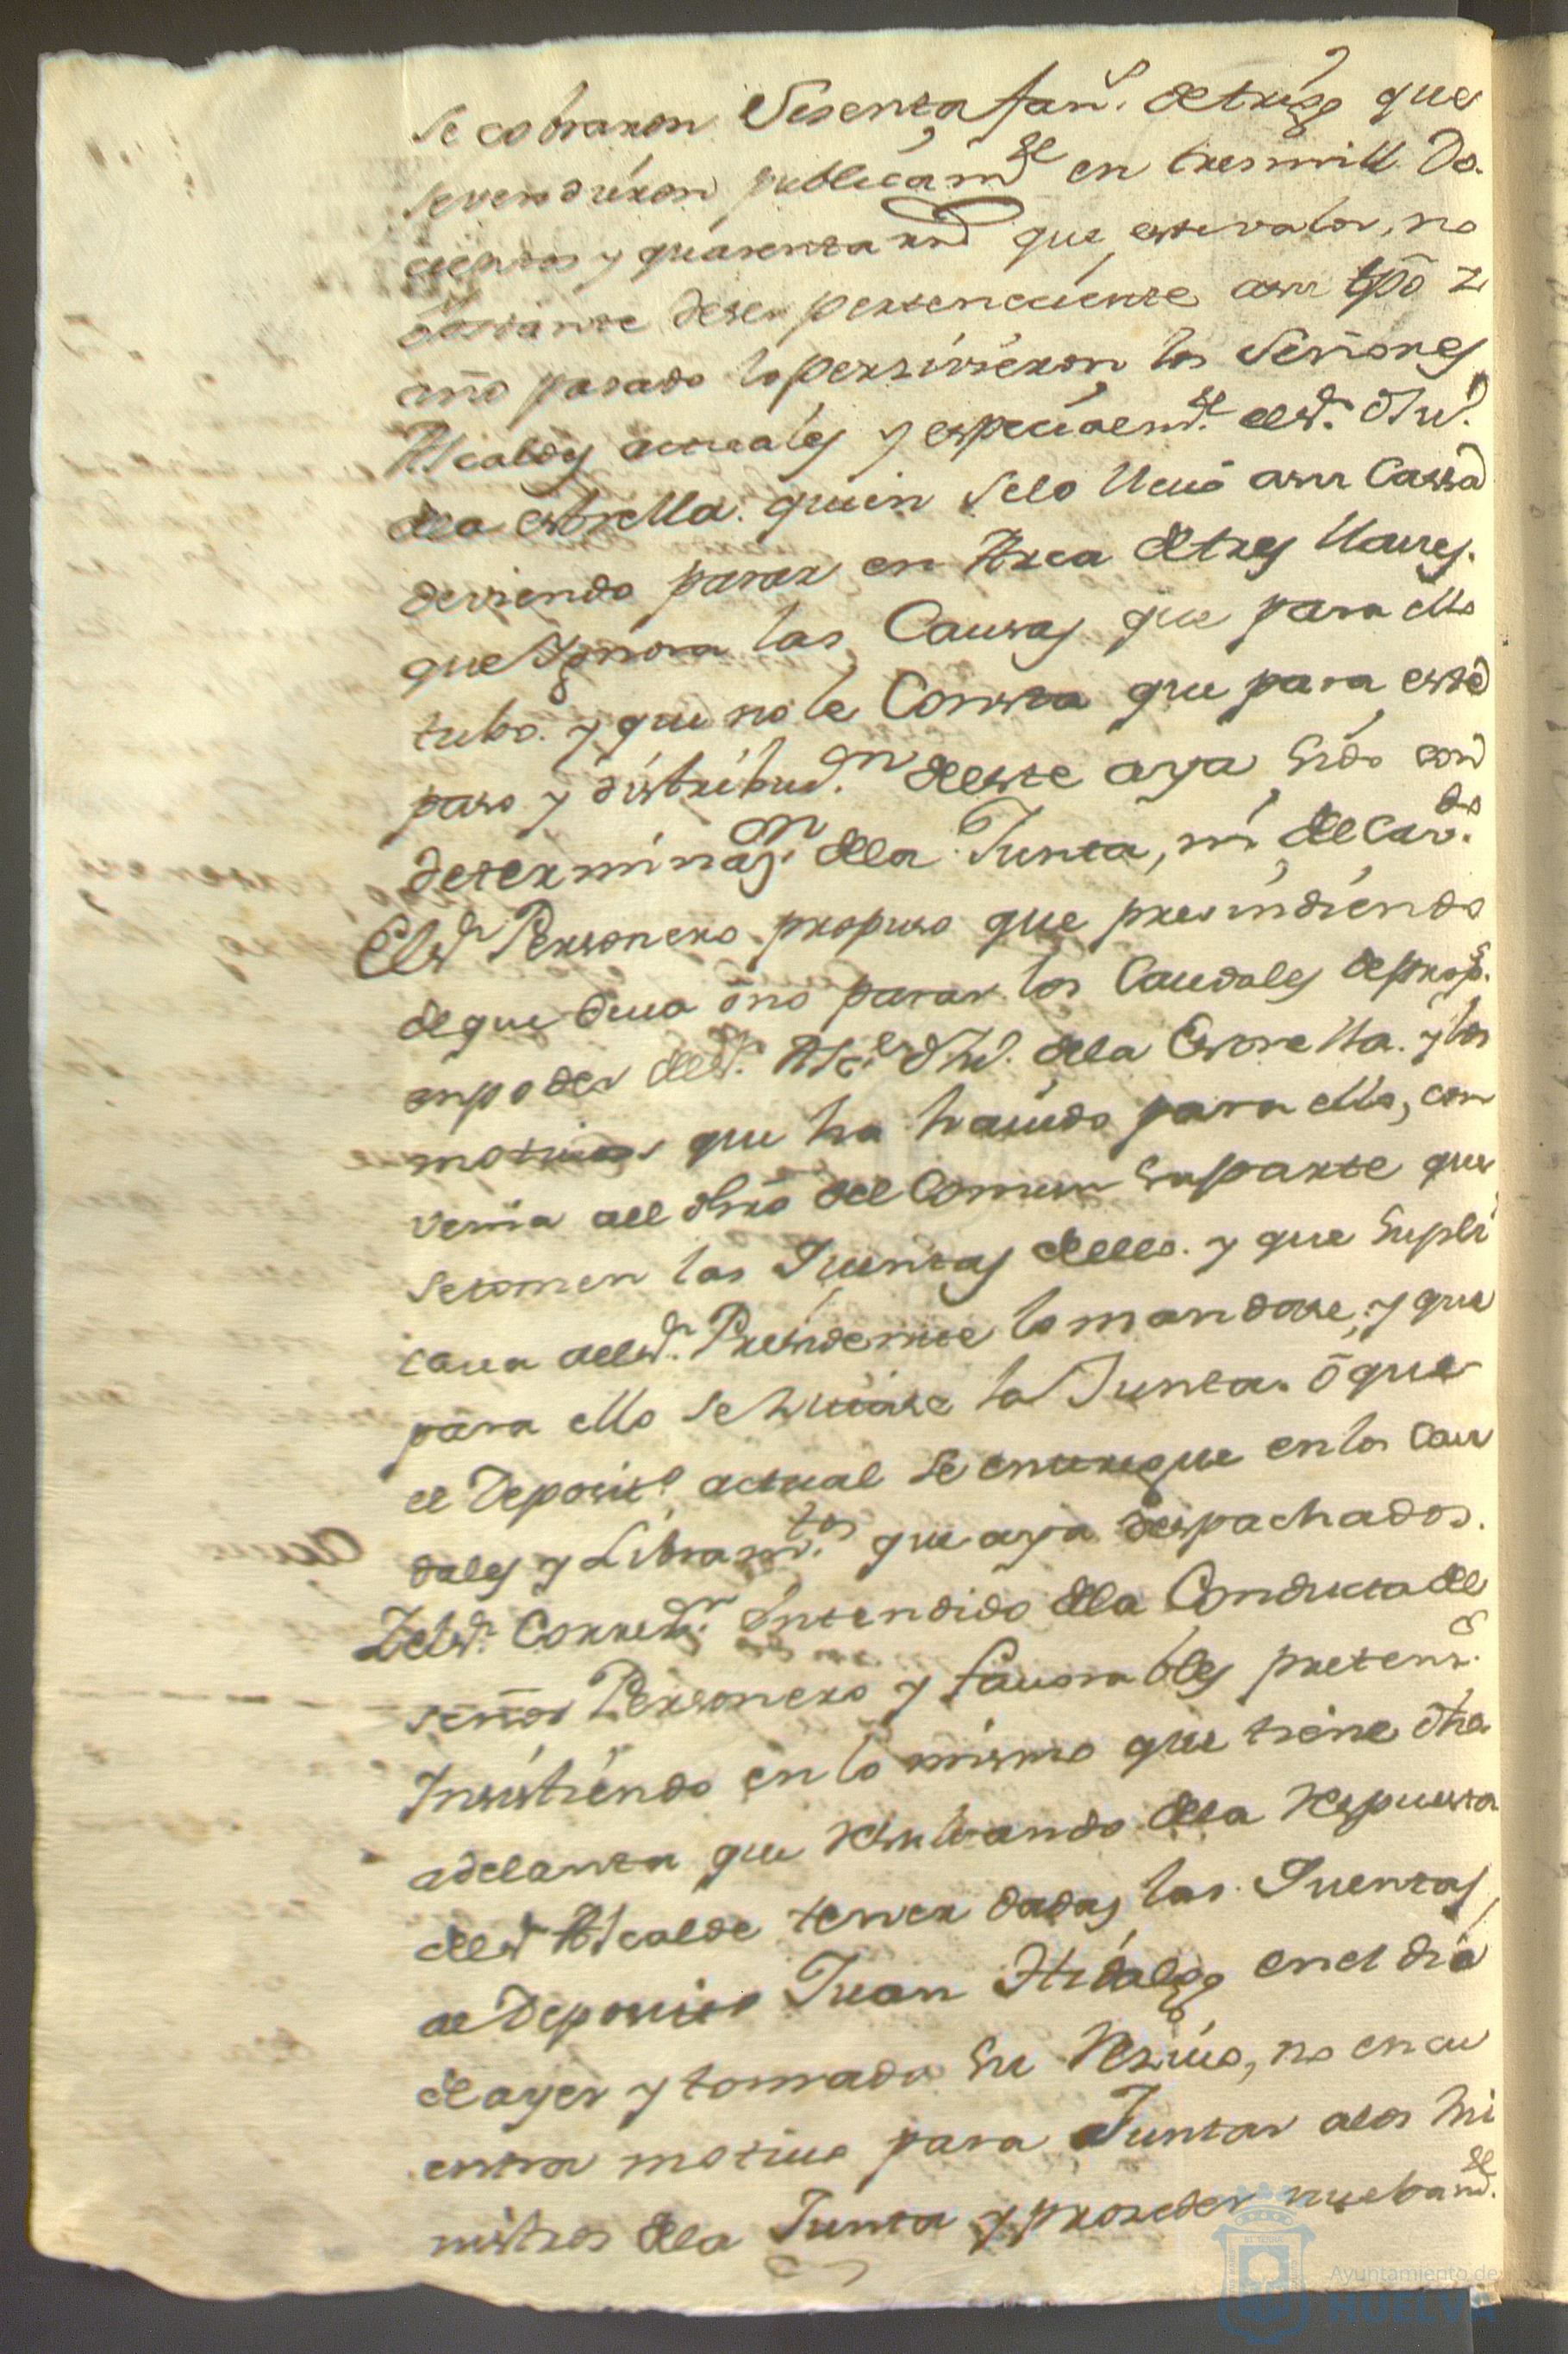 Se cobraron Sesenta fan.s de trigo que
se vendieron publicam.te en tres mill Do
cientos y quarenta rrs que, este valor, no
obstante de ser perteneciente a su tpõ y
año pasado lo persivieron los Señores
Alcaldes actuales y especialem.te el s.r
dela estrella. quien selo llevó a su Cassa
deviendo parar en Arca de tres llaves.
que Ygnora las Causas que para ello
tubo. y que no le Consta que para este
paso y distribuc.on de este aya sido con
determinaz.on dela Junta, ni del Cav.do
El s.r Personero propuso que presindiendo
de que deva ó no parar los Caudales de prop.s
en poder del s.r Alc.e dela Estrella. y los
motivos que ha havido para ello, con
venia al dró del Comun su parte que
se tomen las Quentas de ello. y que supli
cava al s.r Presidente lo mandase, y que
para ello se hiciese la Junta. ó que
el Deposit.o actual se entregue en los Cau
dales y Libram.tos que aya despachados.
Y el s.r Correx.r Entendido dela Conducta del
señor Personero y favorables pretens.s
Insistiendo en lo mismo que tiene dho
adelanta que resultando dela respuesta
del s.r Alcalde tener dadas las Quentas
al Deposit.o Juan Hidalgo en el dia
de ayer y tomado su Reziuo, no encu
entra motivo para Juntar alos Mi
nistros dela Junta y proceder nuebam.te
Ayuntamiento de
HUELVA